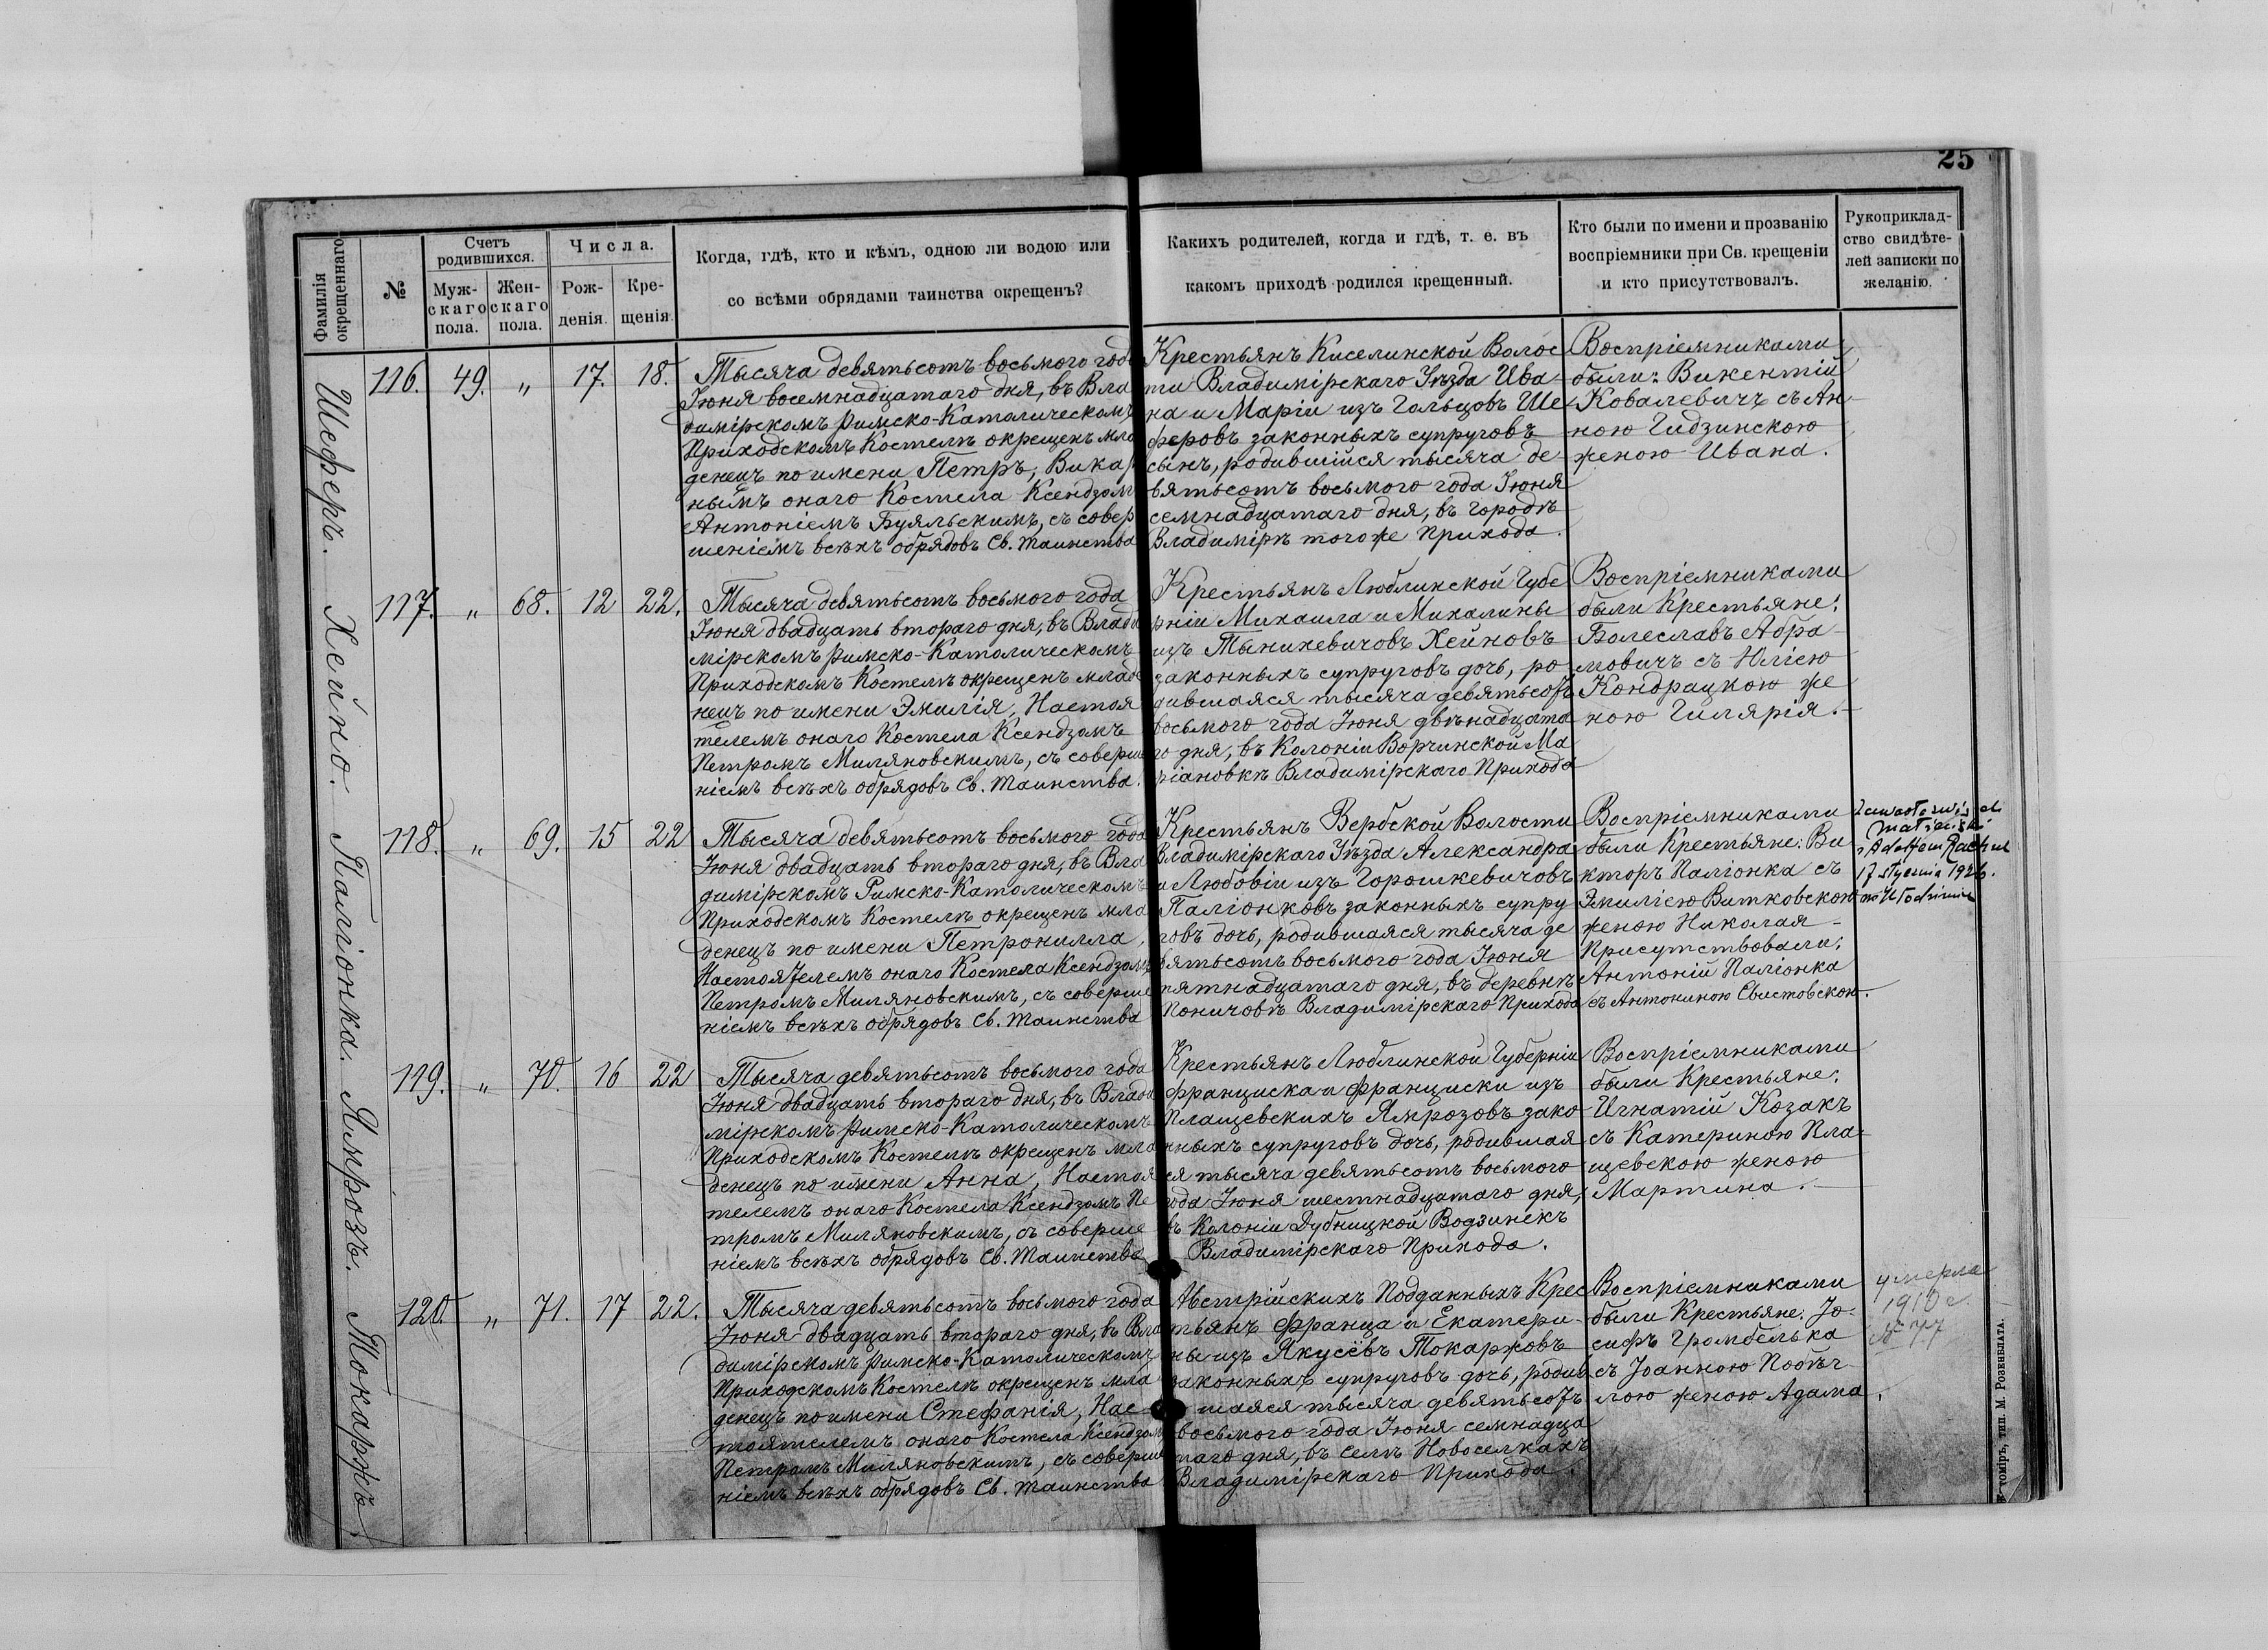 25
Фамилія
окрещеннаго
№
Счетъ
родившихся.
Муж-
скаго
пола.
Жен-
скаго
пола.
Числа.
Рож-
денія.
Кре-
щенія
Когда, гдѣ, кто и кѣмъ, одною ли водою или
со всѣми обрядами таинства окрещенъ?
Какихъ родителей, когда и гдѣ, т. е. въ
какомъ приходѣ родился крещенный.
Кто были по имени и прозванію
воспріемники при Св. крещеніи
и кто присутствовалъ.
Рукоприклад-
ство свидѣте-
лей записки по
желанію.
Шеферъ.
116. 49. " 17. 18.
Тысяча девятьсотъ восьмого год
Іюня восемнадцатаго дня, въ Вла
димірскомъ Римско-Католическомъ
Приходскомъ Костелѣ окрещенъ мла
денецъ по имени Петръ, Викар
нымъ онаго Костела Ксендзом
Антоніемъ Буяльскимъ, съ совер
шеніемъ всѣхъ обрядовъ Св. Таинства
Крестьянъ Киселинской Волос
ти Владимірскаго Уѣзда Ива-
на и Маріи изъ Гольцовъ Ше-
феровъ законныхъ супруговъ
сынъ, родившійся тысяча де-
вятьсотъ восьмого года Іюня
семнадцатаго дня, въ городѣ
Владимірѣ того же Прихода.
Воспріемниками
были: Викентій
Ковалевичъ съ Ан-
ною Гидзинскою
женою Ивана.
Хейно.
117. " 68. 12 22.
Тысяча девятьсотъ восьмого года
Іюня двадцать второго дня, въ Влади
мірскомъ Римско-Католическомъ
Приходскомъ Костелѣ окрещенъ младе
нецъ по имени Эмилія, Настоя
телемъ онаго Костела Ксендзомъ
Петромъ Миляновскимъ, съ соверше
ніемъ всѣхъ обрядовъ Св. Таинства.
Крестьянъ Люблинской Губе
рніи Михаила и Михалины
изъ Тынихевичовъ Хейновъ
законныхъ супруговъ дочь, ро-
дившаяся тысяча девятьсотъ
восьмого года Іюня двѣнадцата
го дня, въ Колоніи Ворчинской Ма
ріановкѣ Владимірскаго Прихода
Воспріемниками
были Крестьяне:
Болеславъ Абра-
мовичъ съ Юліею
Кондрацкою же
ною Гилярія.
Паліонка.
118. " 69. 15 22
Тысяча девятьсотъ восьмого года
Іюня двадцать второго дня, въ Вла
димірскомъ Римско-Католическомъ
Приходскомъ Костелѣ окрещенъ мла
денецъ по имени Петронилла,
Настоятелемъ онаго Костела Ксендзомъ
Петромъ Миляновскимъ, съ соверше
ніемъ всѣхъ обрядовъ Св. Таинства
Крестьянъ Вербской Волости
Владимірскаго Уѣзда Александра
и Любовіи изъ Горошкевичовъ
Паліонковъ законныхъ супру
говъ дочь, родившаяся тысяча де
вятьсотъ восьмого года Іюня
пятнадцатаго дня, въ деревнѣ
Поничовѣ Владимірскаго Прихода
Воспріемниками
были Крестьяне: Ви
кторъ Паліонка съ
Эмиліею Витковскою
женою Николая
Присутствовали:
Антоній Паліонка
съ Антониною Свистовскою.
17 stycznia
Ямрозъ.
119. " 70. 16 22
Тысяча девятьсотъ восьмого года
Іюня двадцать второго дня, въ Влади
мірскомъ Римско-Католическомъ
Приходскомъ Костелѣ окрещенъ мла
денецъ по имени Анна, Настоя
телемъ онаго Костела Ксендзомъ Пе
тромъ Миляновскимъ, съ соверше
ніемъ всѣхъ обрядовъ Св. Таинства
Крестьянъ Люблинской Губерніи
Франциска и Франциски изъ
Плащевскихъ Ямрозовъ зако-
нныхъ супруговъ дочь, родившая
ся тысяча девятьсотъ восьмого
года Іюня шестнадцатаго дня,
въ Колоніи Дубницкой Водзинекъ
Владимірскаго Прихода.
Воспріемниками
были Крестьяне:
Игнатій Козакъ
съ Катериною Пла-
щевскою женою
Мартина.
Токаржъ.
120. " 71. 17 22.
Тысяча девятьсотъ восьмого года
Іюня двадцать второго дня, въ Вла
димірскомъ Римско-Католическомъ
Приходскомъ Костелѣ окрещенъ мла
денецъ по имени Стефанія, Нас
тоятелемъ онаго Костела Ксендзом
Петромъ Миляновскимъ, съ соверше
ніемъ всѣхъ обрядовъ Св. Таинства
Австрійскихъ Подданныхъ Крес
тьянъ Франца и Екатери-
ны изъ Якусёвъ Токаржовъ
законныхъ супруговъ дочь, родив
шаяся тысяча девятьсотъ
восьмого года Іюня семнадца
таго дня, въ селѣ Новоселкахъ
Владимірскаго Прихода.
Воспріемниками
были Крестьяне: Іо-
сифъ Громбелька
съ Іоанною Побѣг-
лою женою Адама.
умерла
1910 г.
№ 77
томіръ, тип. М. Розенблата.